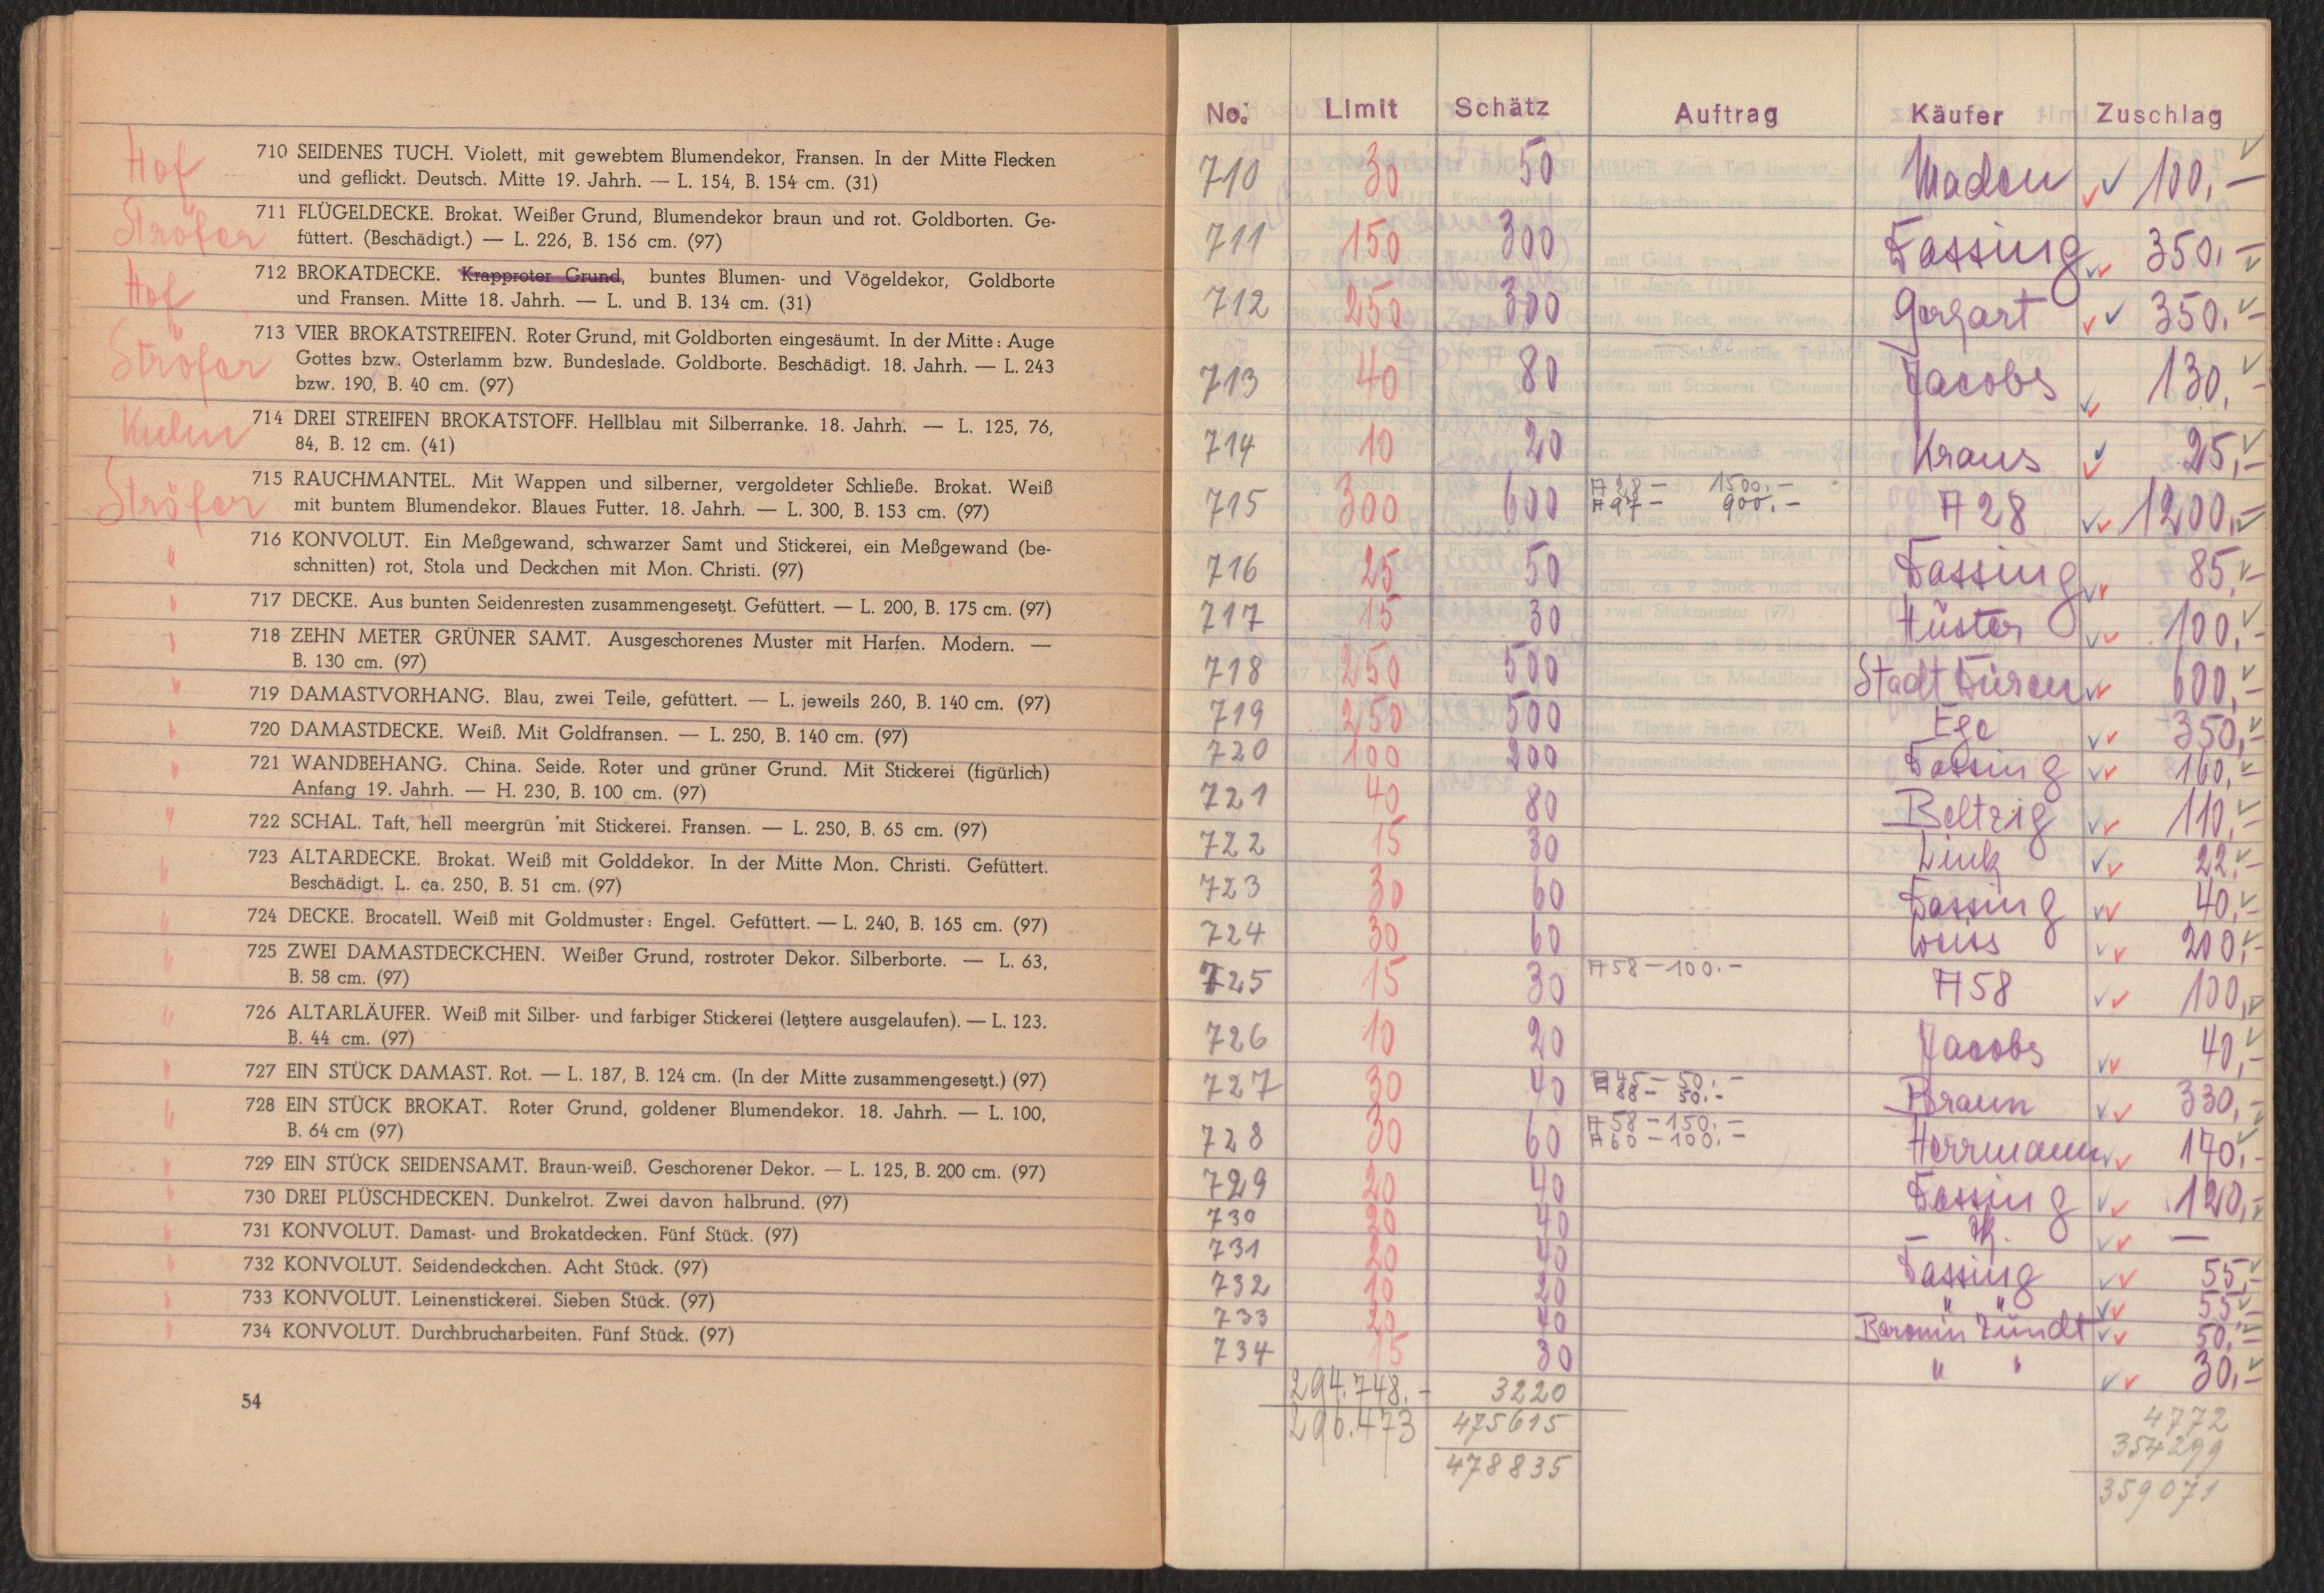 Hof
710 SEIDENES TUCH. Violett, mit gewebtem Blumendekor, Fransen. In der Mitte Flecken
und geflickt. Deutsch. Mitte 19. Jahrh. — L. 154, B. 154 cm. (31)
Ströfer
711 FLÜGELDECKE. Brokat. Weißer Grund, Blumendekor braun und rot. Goldborten. Ge-
füttert. (Beschädigt.) — L. 226, B. 156 cm. (97)
Hof
712 BROKATDECKE. Krapproter Grund, buntes Blumen- und Vögeldekor, Goldborte
und Fransen. Mitte 18. Jahrh. — L. und B. 134 cm. (31)
Ströfer
713 VIER BROKATSTREIFEN. Roter Grund, mit Goldborten eingesäumt. In der Mitte: Auge
Gottes bzw. Osterlamm bzw. Bundeslade. Goldborte. Beschädigt. 18. Jahrh. — L. 243
bzw. 190, B. 40 cm. (97)
714 DREI STREIFEN BROKATSTOFF. Hellblau mit Silberranke. 18. Jahrh. — L. 125, 76,
84, B. 12 cm. (41)
Ströfer
715 RAUCHMANTEL. Mit Wappen und silberner, vergoldeter Schließe. Brokat. Weiß
mit buntem Blumendekor. Blaues Futter. 18. Jahrh. — L. 300, B. 153 cm. (97)
" 716 KONVOLUT. Ein Meßgewand, schwarzer Samt und Stickerei, ein Meßgewand (be-
schnitten) rot, Stola und Deckchen mit Mon. Christi. (97)
" 717 DECKE. Aus bunten Seidenresten zusammengesetzt. Gefüttert. — L. 200, B. 175 cm. (97)
" 718 ZEHN METER GRÜNER SAMT. Ausgeschorenes Muster mit Harfen. Modern. —
B. 130 cm. (97)
" 719 DAMASTVORHANG. Blau, zwei Teile, gefüttert. — L. jeweils 260, B. 140 cm. (97)
" 720 DAMASTDECKE. Weiß. Mit Goldfransen. — L. 250, B. 140 cm. (97)
" 721 WANDBEHANG. China. Seide. Roter und grüner Grund. Mit Stickerei (figürlich)
Anfang 19. Jahrh. — H. 230, B. 100 cm. (97)
" 722 SCHAL. Taft, hell meergrün mit Stickerei. Fransen. — L. 250, B. 65 cm. (97)
" 723 ALTARDECKE. Brokat. Weiß mit Golddekor. In der Mitte Mon. Christi. Gefüttert.
Beschädigt. L. ca. 250, B. 51 cm. (97)
" 724 DECKE. Brocatell. Weiß mit Goldmuster: Engel. Gefüttert. — L. 240, B. 165 cm. (97)
" 725 ZWEI DAMASTDECKCHEN. Weißer Grund, rostroter Dekor. Silberborte. — L. 63,
B. 58 cm. (97)
" 726 ALTARLÄUFER. Weiß mit Silber- und farbiger Stickerei (letztere ausgelaufen). — L. 123.
B. 44 cm. (97)
" 727 EIN STÜCK DAMAST. Rot. — L. 187, B. 124 cm. (In der Mitte zusammengesetzt.) (97)
" 728 EIN STÜCK BROKAT. Roter Grund, goldener Blumendekor. 18. Jahrh. — L. 100,
B. 64 cm (97)
" 729 EIN STÜCK SEIDENSAMT. Braun-weiß. Geschorener Dekor. — L. 125, B. 200 cm. (97)
" 730 DREI PLÜSCHDECKEN. Dunkelrot. Zwei davon halbrund. (97)
" 731 KONVOLUT. Damast- und Brokatdecken. Fünf Stück. (97)
" 732 KONVOLUT. Seidendeckchen. Acht Stück. (97)
" 733 KONVOLUT. Leinenstickerei. Sieben Stück. (97)
" 734 KONVOLUT. Durchbrucharbeiten. Fünf Stück. (97)
54
No. Limit Schätz Auftrag Käufer Zuschlag
710 30 50 Maden 100,—
711 150 300 Fassing 350,—
712 250 300 350,—
713 40 80 Jacobs 130,—
714 10 20 Kraus 25,—
715 300 600 A 28 — 1500.— A 28 1200,—
A 97 — 900.—
716 25 50 Fassing 85,—
717 15 30 Hüster 100,—
718 250 500 Stadt Düren 600,—
719 250 500 Ege 350,—
720 100 200 Fassing 160,—
721 40 80 Beltzig 110,—
722 15 30 Link 22,—
723 30 60 Fassing 40,—
724 30 60 Weiss 200,—
725 15 30 A 58 — 100.— A 58 100,—
726 10 20 Jacobs 40,—
727 30 40 A 45 — 50.— Braun 330,—
A 88 — 50.—
728 30 60 A 58 — 150.— Herrmann 170,—
A 60 — 100.—
729 20 40 Fassing 120,—
730 20 40 — —
731 20 40 Fassing 55,—
732 10 20 " " 55,—
733 20 40 Baronin Zündt 50,—
734 15 30 " " 30,—
294.748.— 3220
296.473 475615
478835
4772
354299
359071